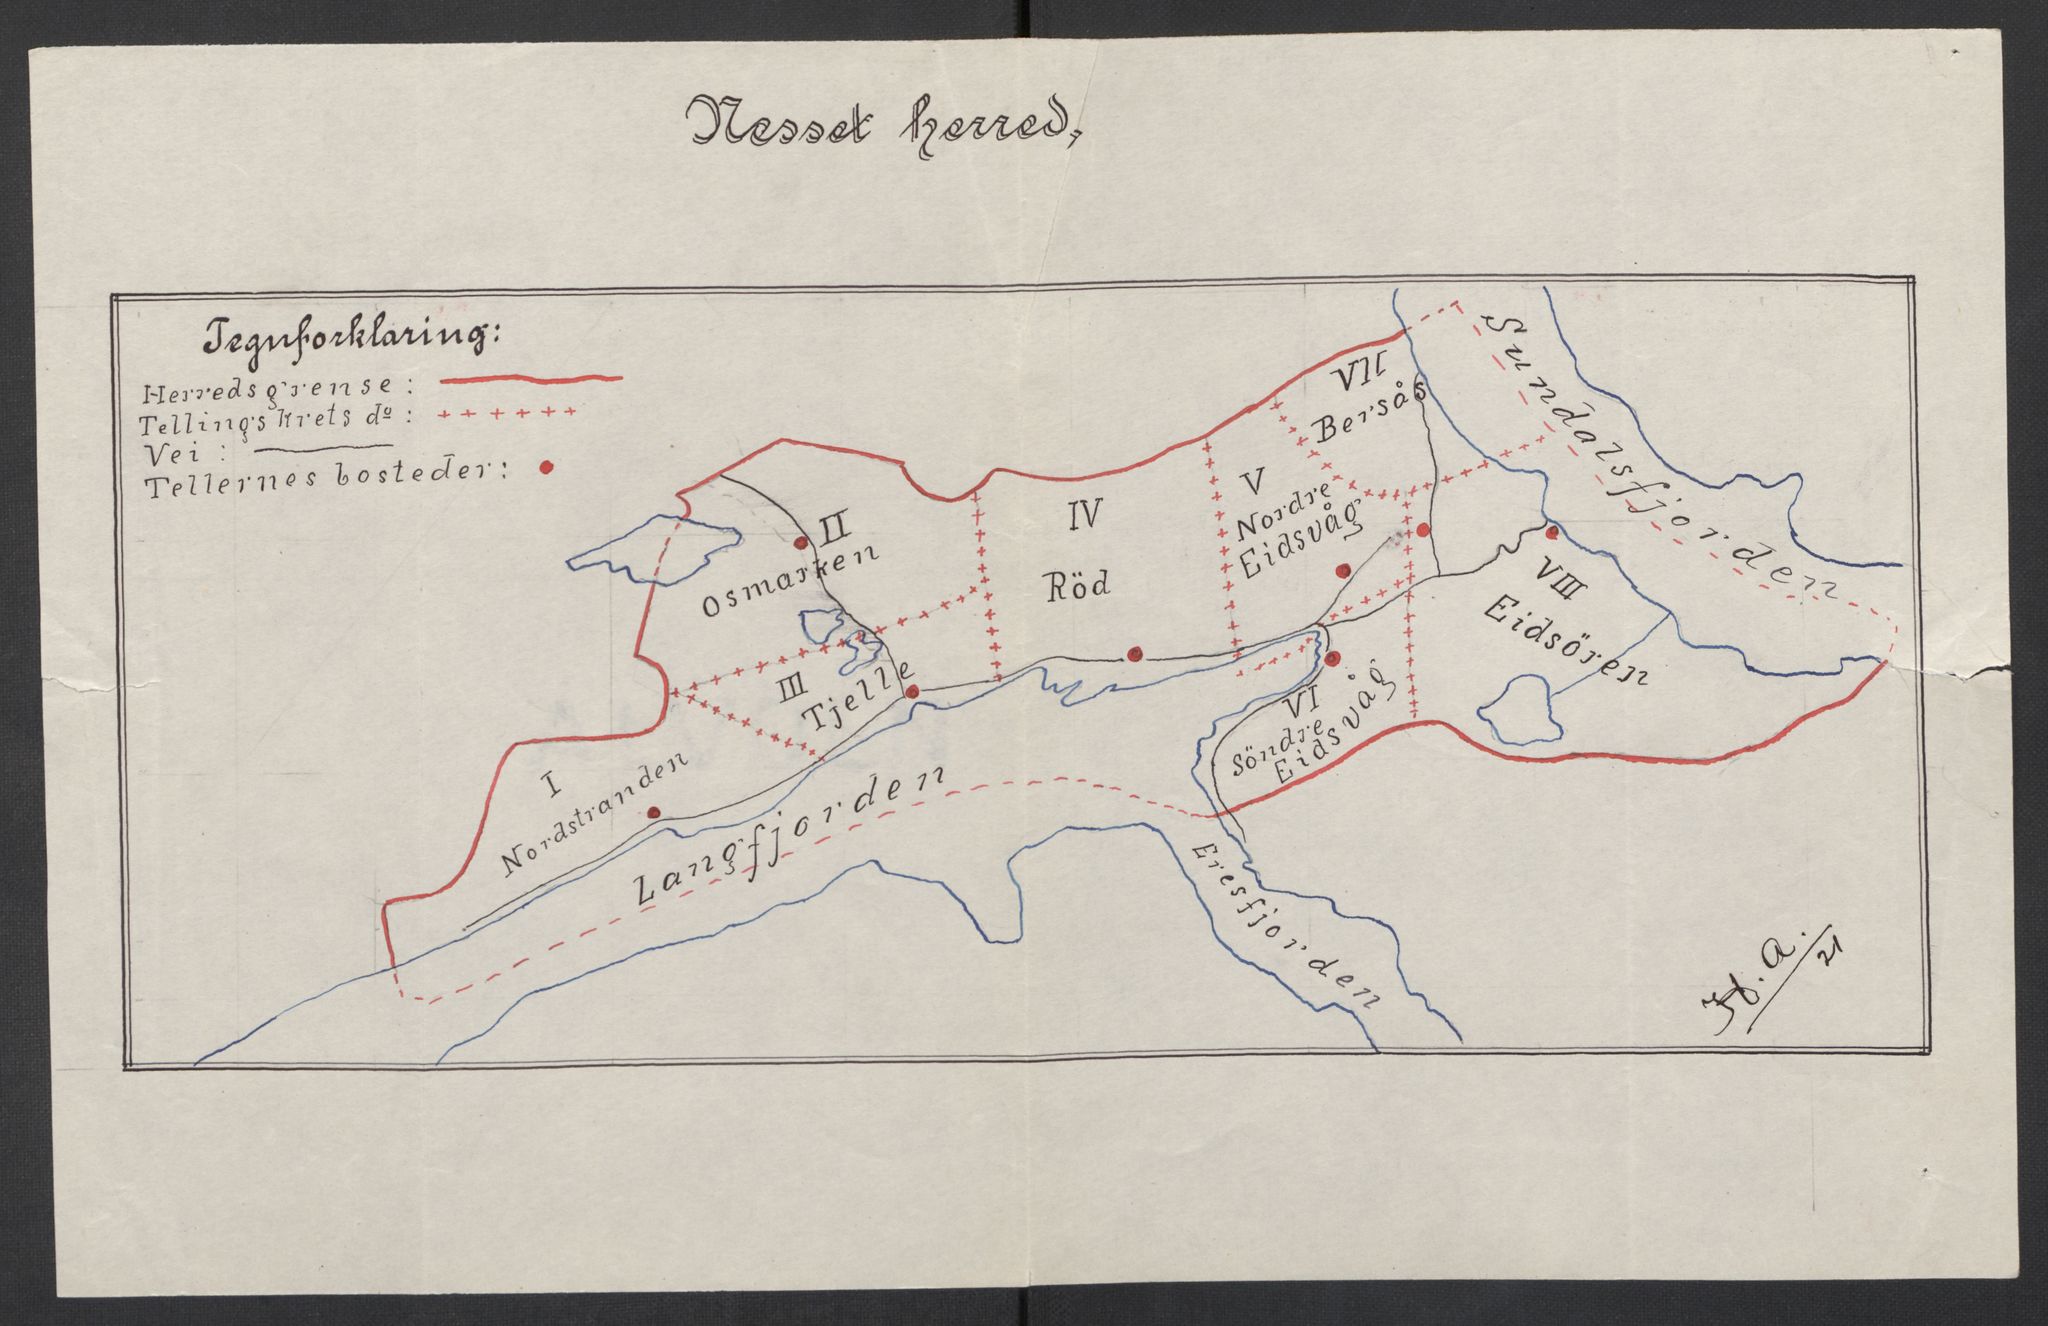 Nesset herred,
Tegnforklaring:
Herredsgrense:
Tellingskrets dº:
Vei:
Tellernes bosteder:
Sundalsfjorden
VII
Bersås
V
Nordre
Eidsvåg
IV
Röd
II
Osmarken
III
Tjelle
VIII
Eidsören
VI
Söndre
Eidsvåg
I
Nordstranden
Langfjorden
Eresfjorden
H.A.
21